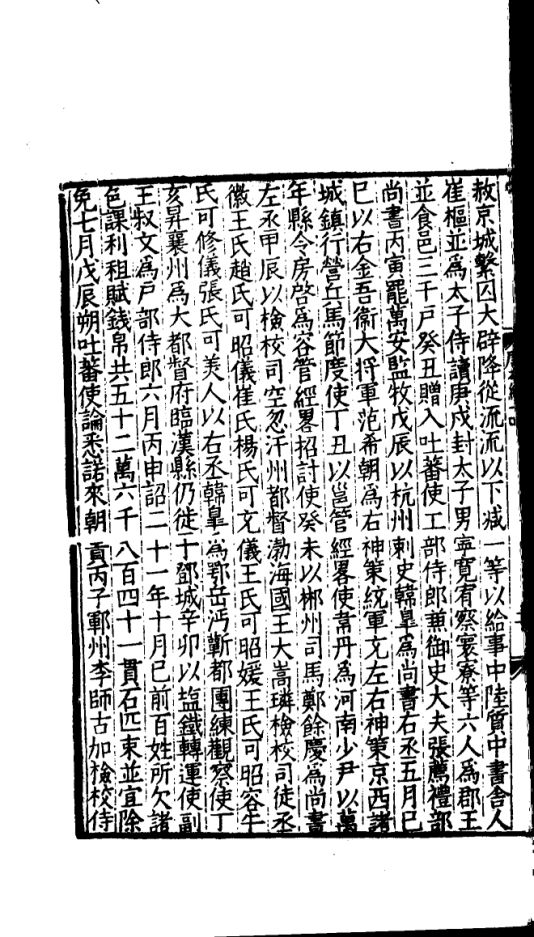 赦京城繫囚大辟降從流流以下减一等以給事中陸質中書舍人
崔樞並爲太子侍讀庚戌封太子男寧寬宥察寰寮等六人爲郡王
並食邑三千戸癸丑贈入吐蕃使工部侍郎兼御史大夫張薦禮部
尚書丙寅罷萬安監牧戊辰以杭州刺史韓臯爲尚書右丞五月己
巳以右金吾衛大将軍范希朝爲右神策統軍充左右神策京西諸
城鎮行營兵馬節度使丁丑以邕管經畧使韋丹爲河南少尹以萬
年縣令房啓爲容管經畧招討使癸未以郴州司馬鄭餘慶爲尚書
左丞甲辰以檢校司空忽汗州都督渤海國王大嵩璘檢校司徒丞
徽王氏趙氏可昭儀崔氏楊氏可充儀王氏可昭媛王氏可昭容牛
氏可修儀張氏可美人以右丞韓臯爲鄂岳沔蘄都團練觀察使丁
亥昇襄州爲大都督府臨漢縣仍徙于鄧城辛卯以塩鐵轉運使副
王叔文爲戸部侍郎六月丙申詔二十一年十月已前百姓所欠諸
色課利租賦錢帛共五十二萬六千八百四十一貫石匹束並宜除
免七月戊辰朔吐蕃使論悉諾來朝貢丙子鄆州李師古加檢校侍